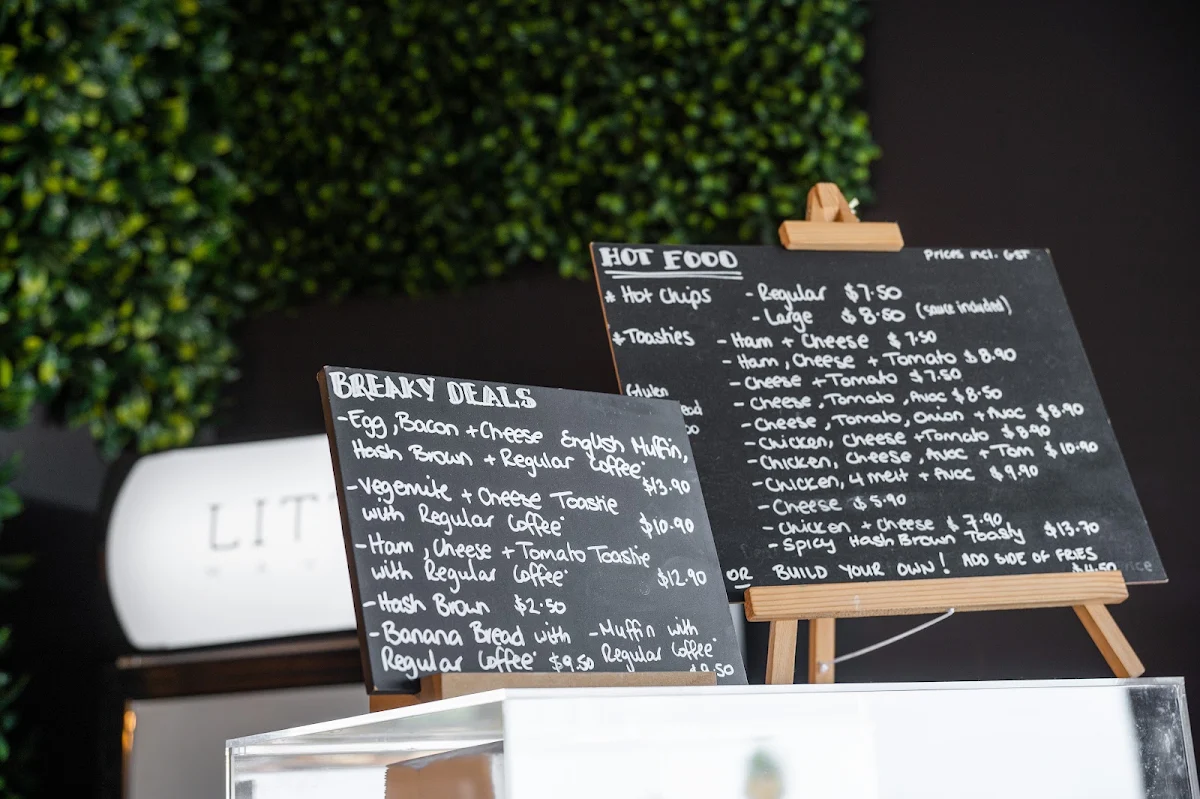 LIT
BREAKY DEALS
-Egg, Bacon + Cheese English Muffin,
Hash Brown + Regular Coffee $13.90
-Vegemite + Cheese Toastie
with Regular Coffee $10.90
-Ham, Cheese + Tomato Toastie
with Regular Coffee $12.90
-Hash Brown $2.50
-Banana Bread with
Regular Coffee $9.50
-Muffin with
Regular Coffee 9.50
HOT FOOD
Prices incl. GST
* Hot Chips - Regular $7.50
- Large $8.50 (sauce included)
* Toasties - Ham + Cheese $7.50
- Ham, Cheese + Tomato $8.90
- Cheese + Tomato $7.50
Gluten - Cheese, Tomato, Avoc $8.50
- Cheese, Tomato, Onion + Avoc $8.90
- Chicken, Cheese + Tomato $8.90
- Chicken, Cheese, Avoc + Tom $10.90
- Chicken, 4 melt + Avoc $9.90
- Cheese $5.90
- Chicken + Cheese $7.90
- Spicy Hash Brown Toasty $13.70
OR BUILD YOUR OWN! ADD SIDE OF FRIES
$4.50